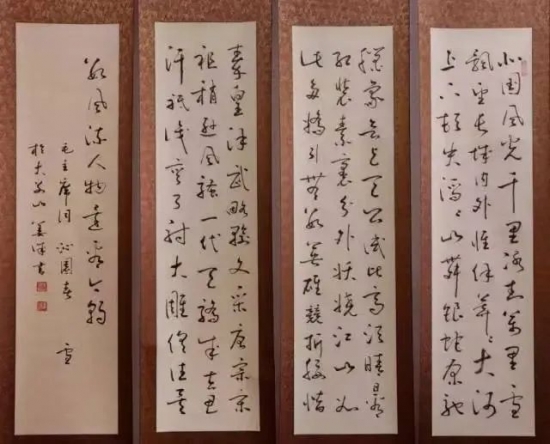 北国風光千里冰封萬里雪
飄望长城内外惟余莽々大河
上下顿失滔々山舞银蛇原驰
蠟象欲与天公试比高须晴日看
红装素裹分外妖娆江山如
此多娇引無數英雄競折腰惜
秦皇汉武略輸文采唐宗宋
祖稍逊風騷一代天骄成吉思
汗祇识弯弓射大雕俱往矣
數風流人物還看今朝
毛主席词 沁園春 雪